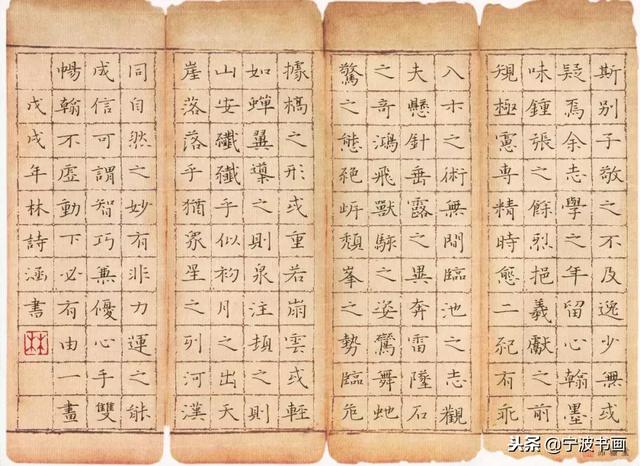 斯別子敬之不及逸少無或
疑焉余志學之年留心翰墨
味鍾張之餘烈挹羲獻之前
規極慮專精時愈二紀有乖
入木之術無間臨池之志觀
夫懸針垂露之異奔雷墜石
之奇鴻飛獸駭之姿鸞舞虵
驚之態絕岸頹峯之勢臨危
據槁之形或重若崩雲或輕
如蟬翼導之則泉注頓之則
山安纖纖乎似初月之出天
崖落落乎猶眾星之列河漢
同自然之妙有非力運之能
成信可謂智巧兼優心手雙
暢翰不虛動下必有由一畫
戊戌年林詩涵書
林
头条@宁波书画